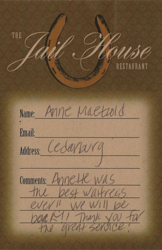 THE
Jail House
RESTAURANT
Name: Anne Maetzold
Email:
Address: Cedarburg
Comments: Annette was
the best waitress
ever!! We will be
back! Thank you for
the great service!